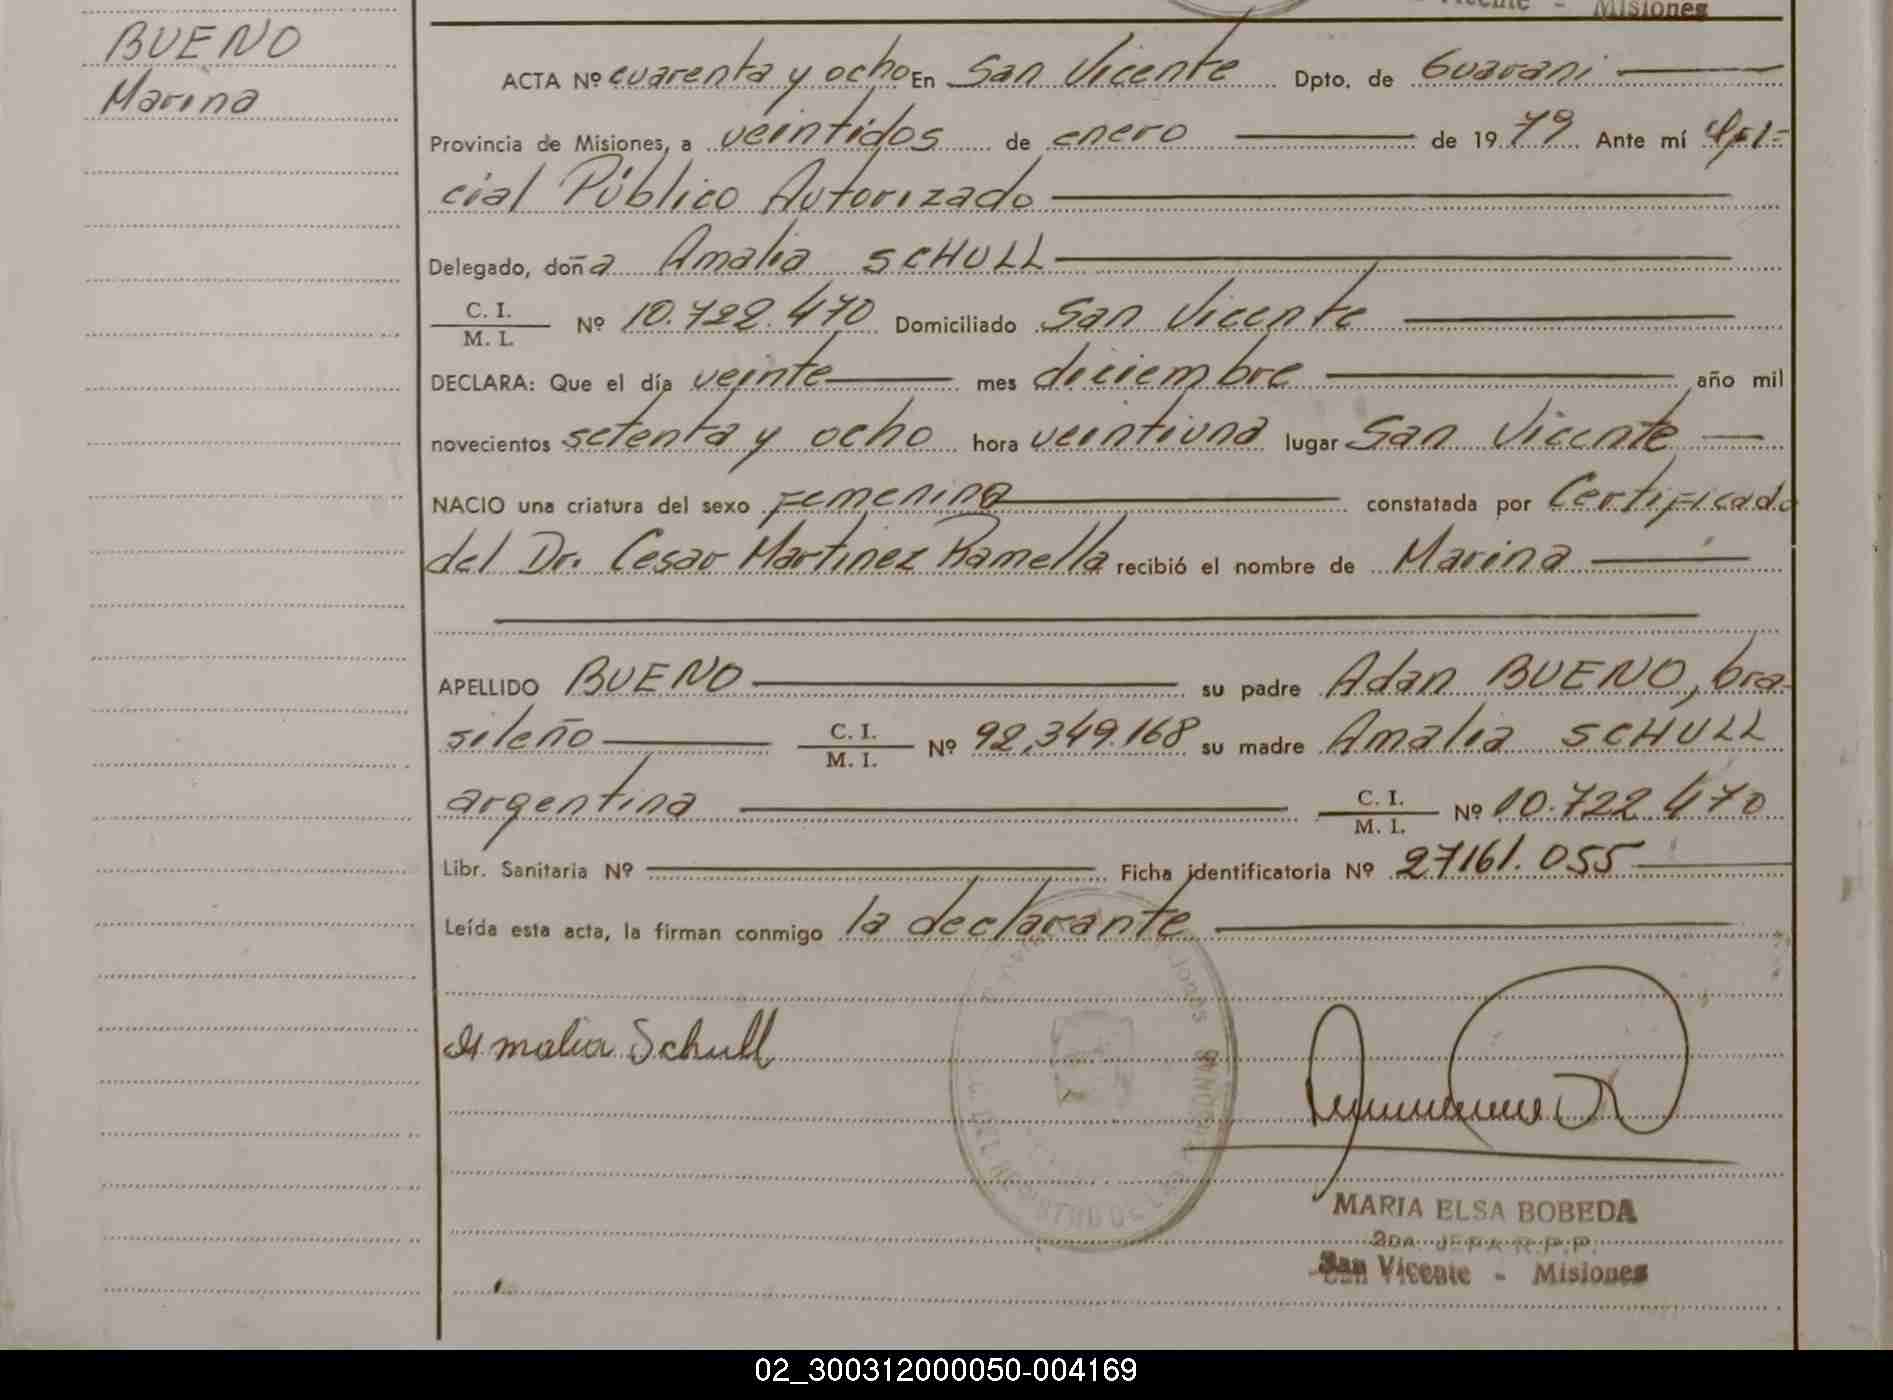 Vicente - Misiones
BUENO
Marina
ACTA Nº cuarenta y ocho En San Vicente Dpto. de Guaraní
Provincia de Misiones, a veintidos de enero de 1979 Ante mí Ofi-
cial Público Autorizado
Delegado, doña Amalia SCHULL
C. I.
M. I. Nº 10.722.470 Domiciliado San Vicente
DECLARA: Que el día veinte mes diciembre año mil
novecientos setenta y ocho hora veintiuna lugar San Vicente
NACIO una criatura del sexo Femenino constatada por Certificado
del Dr. Cesar Martinez Ramella recibió el nombre de Marina
APELLIDO BUENO su padre Adan BUENO, bra-
sileño C. I. M. I. Nº 92.349.168 su madre Amalia SCHULL
argentina C. I. M. I. Nº 10.722.470
Libr. Sanitaria Nº Ficha identificatoria Nº 27161.055
Leída esta acta, la firman conmigo la declarante
Amalia Schull
MARIA ELSA BOBEDA
2DA. JEFA R.P.P.
San Vicente - Misiones
02_300312000050-004169